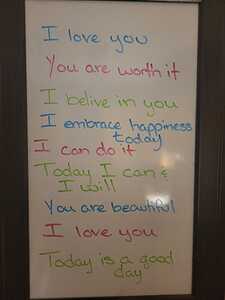 I love you
You are worth it
I belive in you
I embrace happiness
today
I can do it
Today I can &
I will
You are beautiful
I love you
Today is a good
day